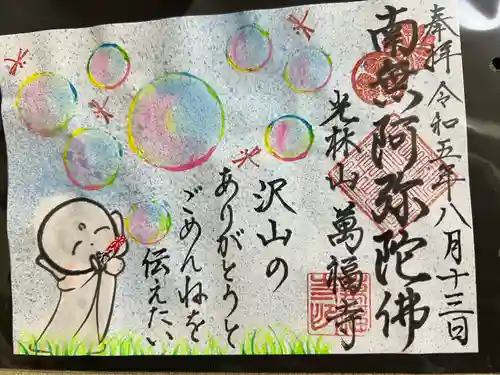 奉拝
令和五年八月十三日
南無阿弥陀佛
光林山 萬福寺
沢山の
ありがとうと
ごめんねを
伝えたい